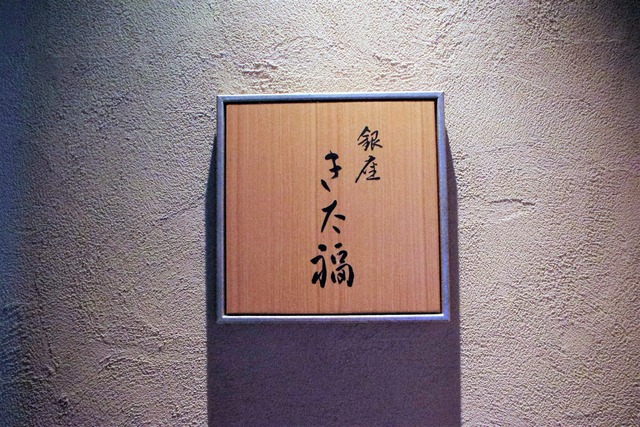 銀座
きた福